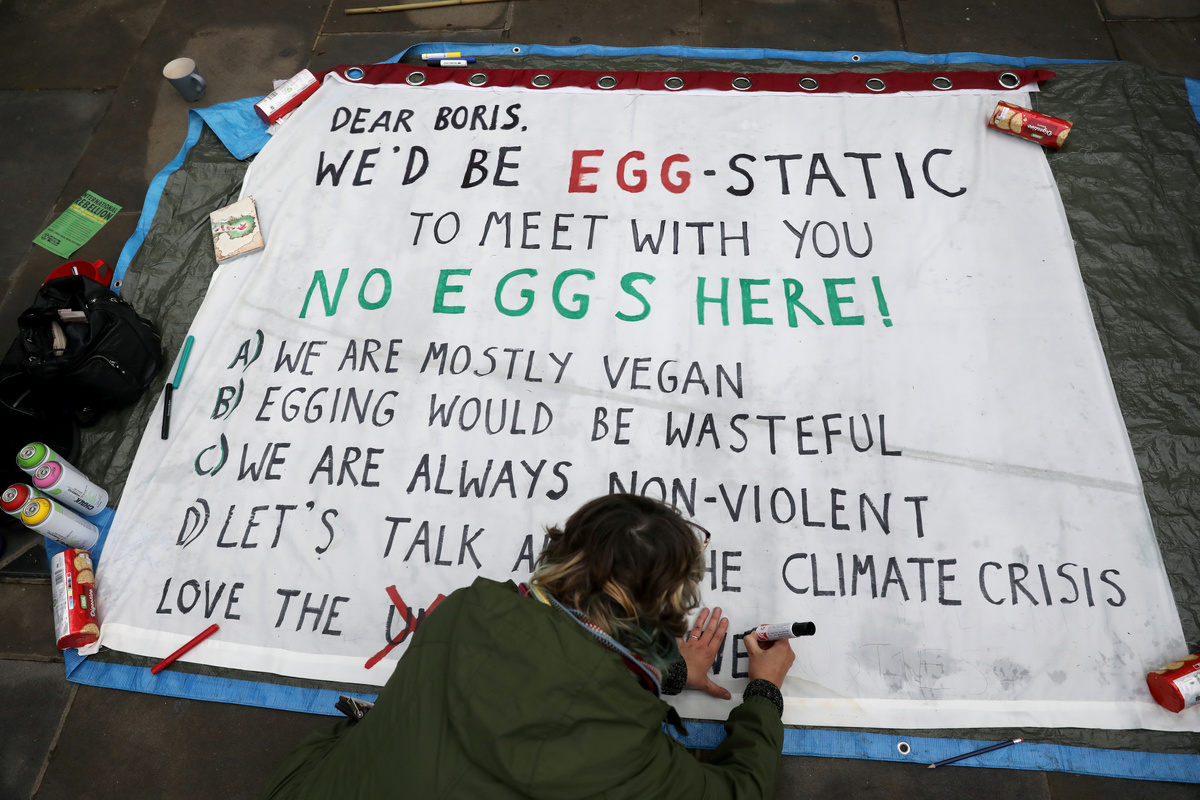 DEAR BORIS.
WE'D BE EGG-STATIC
TO MEET WITH YOU
NO EGGS HERE!
A) WE ARE MOSTLY VEGAN
B) EGGING WOULD BE WASTEFUL
C) WE ARE ALWAYS NON-VIOLENT
D) LET'S TALK CLIMATE CRISIS
LOVE THE
REBELLION
Digestive
Digestive